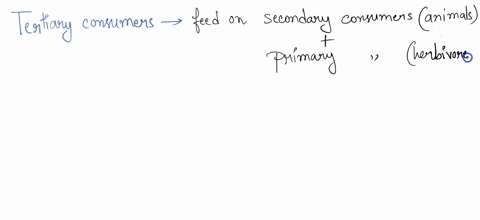 Tertiary consumers → feed on secondary consumers (animals)
+
primary ,, (herbivore